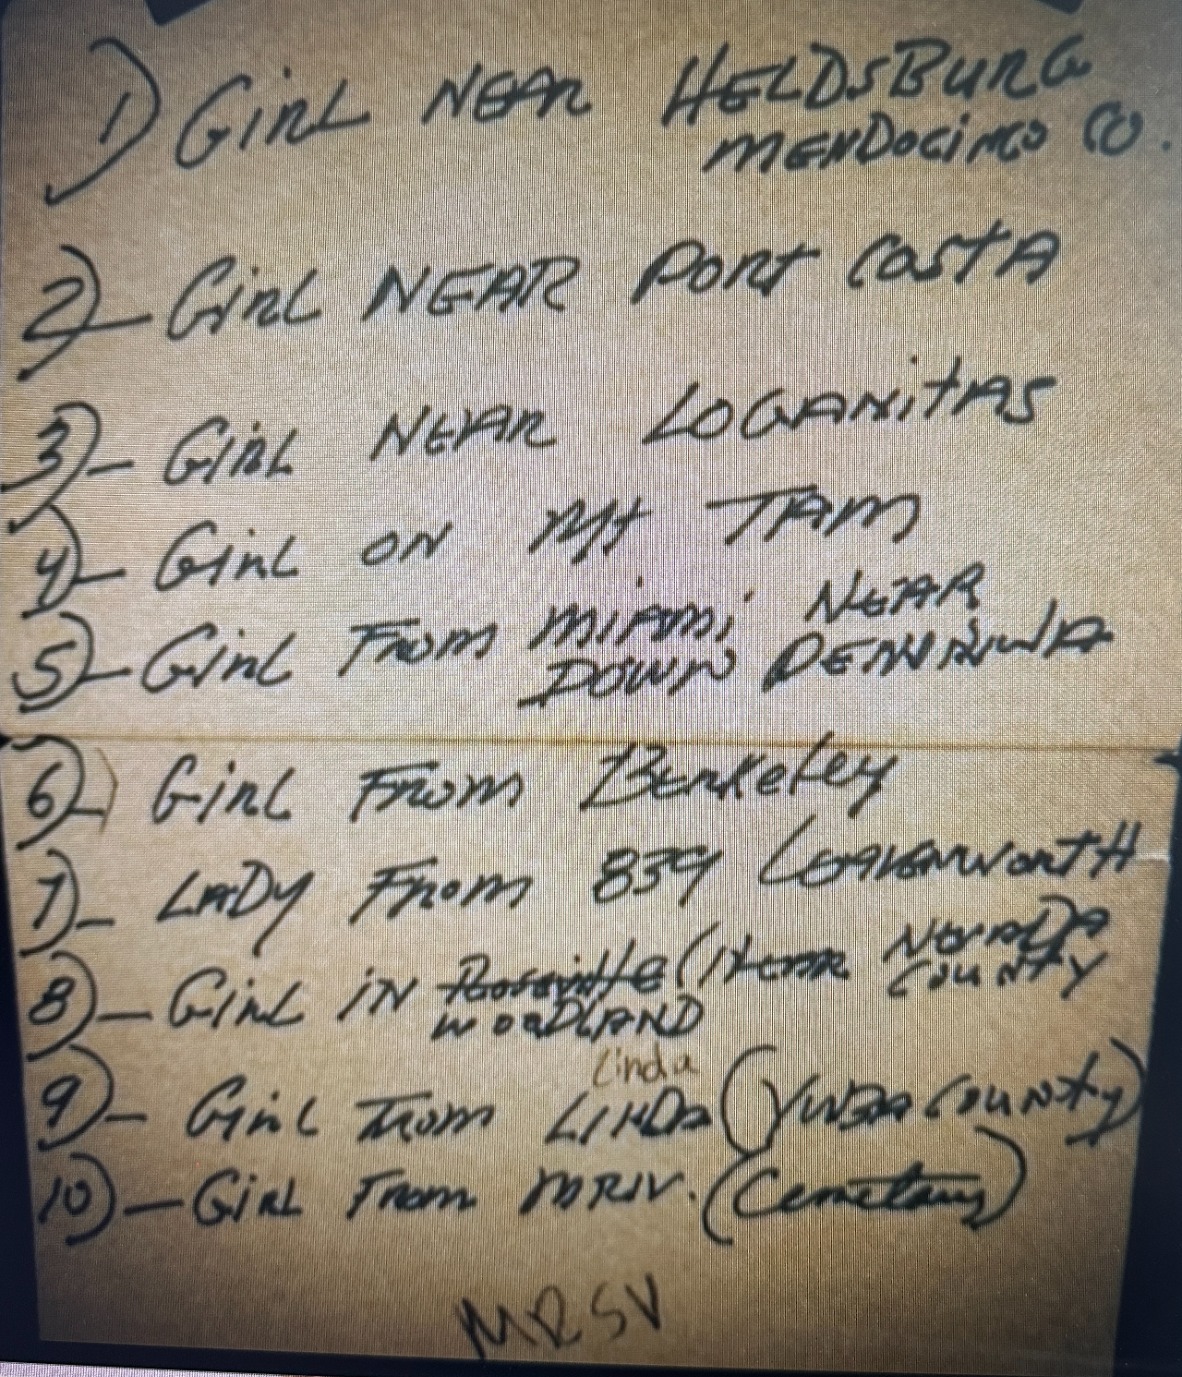 1) GIRL NEAR HELDSBURG
MENDOCINO CO.
2)- GIRL NEAR PORT COSTA
3)- GIRL NEAR LOGANITAS
4)- GIRL ON Mt TAM
5)- GIRL FROM MIAMI NEAR
DOWN PENNINULA
6)- GIRL FROM Berkeley
7)- LADY FROM 839 LEAVENWORTH
8)- GIRL IN Roseville ( NEVADA
WOODLAND COUNTY
Linda
9)- GIRL FROM LINDA (YUBA COUNTY)
10)- GIRL FROM MRIV. (Cemetary)
MRSV